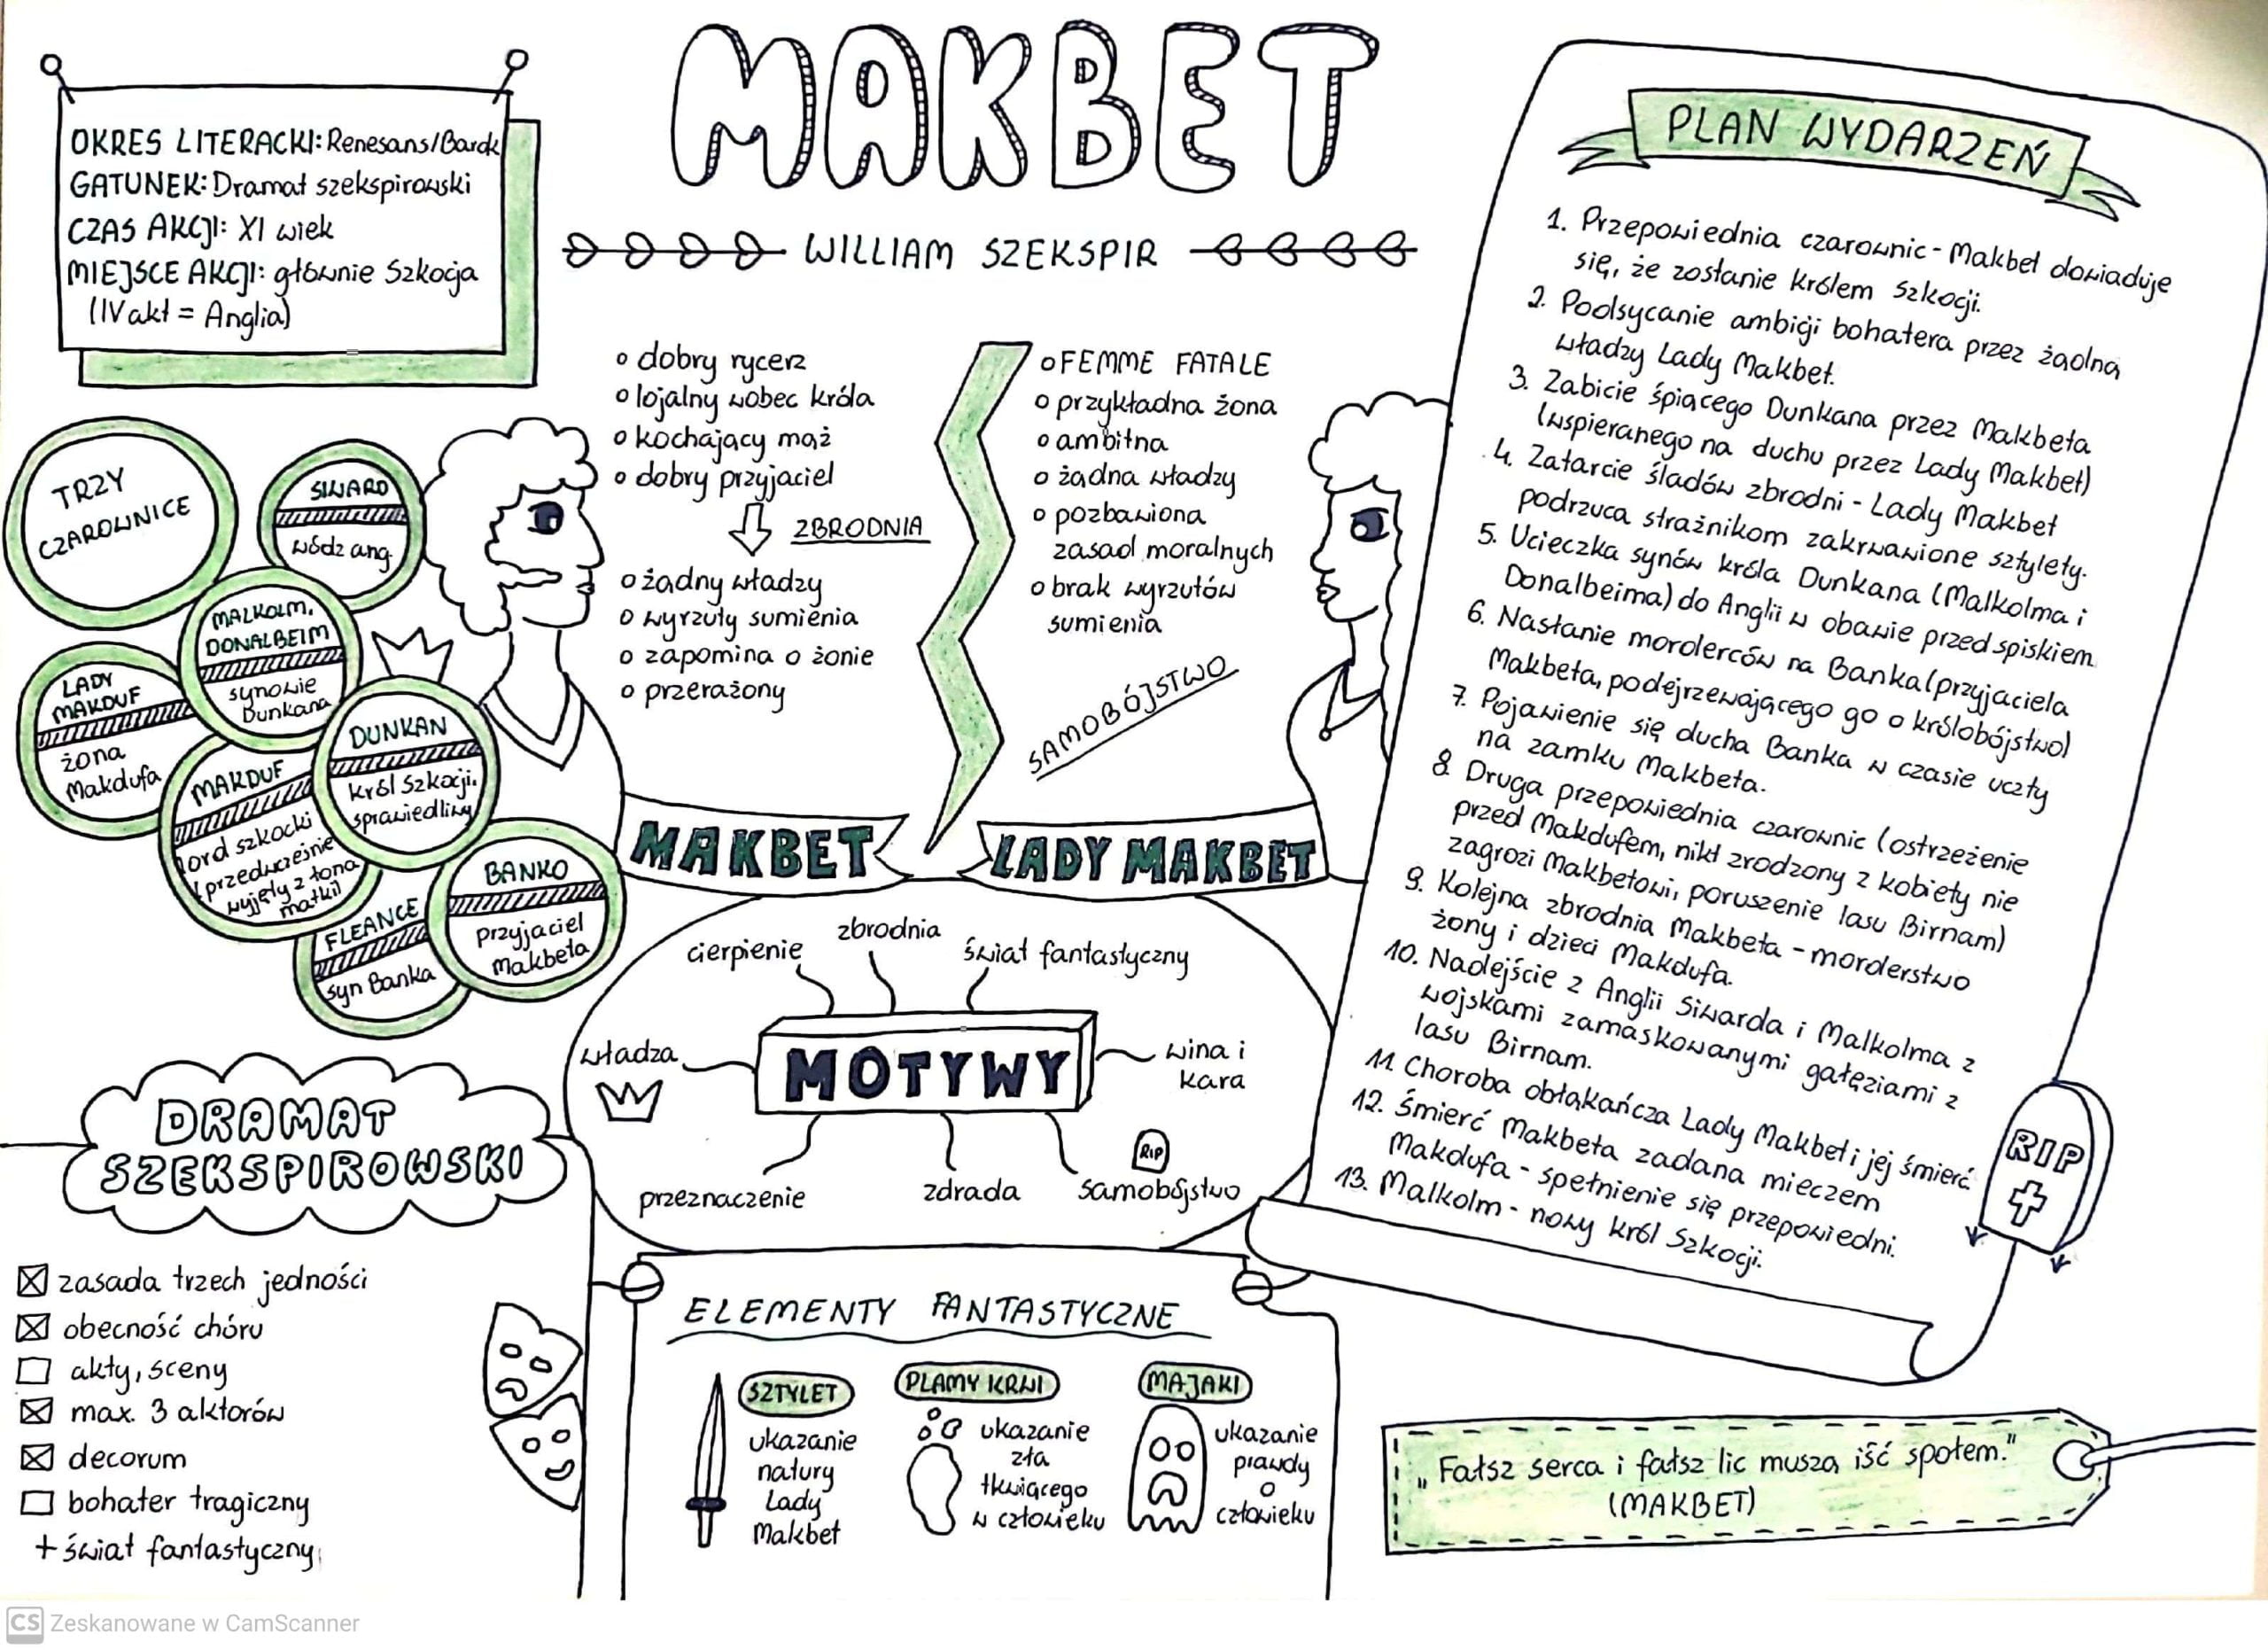 MAKBET
WILLIAM SZEKSPIR
OKRES LITERACKI: Renesans/Barok
GATUNEK: Dramat szekspirowski
CZAS AKCJI: XI wiek
MIEJSCE AKCJI: głównie Szkocja
(IV akt = Anglia)
TRZY
CZAROWNICE
SIWARD
wódz ang.
MALKOLM,
DONALBEIM
synowie
Dunkana
LADY
MAKDUF
żona
Makdufa
MAKDUF
lord szkocki
(przedwcześnie
wyjęty z łona
matki)
DUNKAN
król Szkocji,
sprawiedliwy
BANKO
przyjaciel
Makbeta
FLEANCE
syn Banka
o dobry rycerz
o lojalny wobec króla
o kochający mąż
o dobry przyjaciel
ZBRODNIA
o żądny władzy
o wyrzuty sumienia
o zapomina o żonie
o przerażony
MAKBET
o FEMME FATALE
o przykładna żona
o ambitna
o żądna władzy
o pozbawiona
zasad moralnych
o brak wyrzutów
sumienia
SAMOBÓJSTWO
LADY MAKBET
MOTYWY
cierpienie
zbrodnia
świat fantastyczny
władza
wina i
kara
przeznaczenie
zdrada
RIP
samobójstwo
DRAMAT
SZEKSPIROWSKI
zasada trzech jedności
obecność chóru
akty, sceny
max. 3 aktorów
decorum
bohater tragiczny
+ świat fantastyczny
ELEMENTY FANTASTYCZNE
SZTYLET
ukazanie
natury
Lady
Makbet
PLAMY KRWI
ukazanie
zła
tkwiącego
w człowieku
MAJAKI
ukazanie
prawdy
o
człowieku
PLAN WYDARZEŃ
1. Przepowiednia czarownic - Makbet dowiaduje
się, że zostanie królem Szkocji.
2. Podsycanie ambicji bohatera przez żądną
władzy Lady Makbet.
3. Zabicie śpiącego Dunkana przez Makbeta
(wspieranego na duchu przez Lady Makbet)
4. Zatarcie śladów zbrodni - Lady Makbet
podrzuca strażnikom zakrwawione sztylety.
5. Ucieczka synów króla Dunkana (Malkolma i
Donalbeima) do Anglii w obawie przed spiskiem.
6. Nasłanie morderców na Banka (przyjaciela
Makbeta, podejrzewającego go o królobójstwo)
7. Pojawienie się ducha Banka w czasie uczty
na zamku Makbeta.
8. Druga przepowiednia czarownic (ostrzeżenie
przed Makdufem, nikt zrodzony z kobiety nie
zagrozi Makbetowi, poruszenie lasu Birnam)
9. Kolejna zbrodnia Makbeta - morderstwo
żony i dzieci Makdufa.
10. Nadejście z Anglii Siwarda i Malkolma z
wojskami zamaskowanymi gałęziami z
lasu Birnam.
11. Choroba obłąkańcza Lady Makbet i jej śmierć.
12. Śmierć Makbeta zadana mieczem
Makdufa - spełnienie się przepowiedni.
13. Malkolm - nowy król Szkocji.
RIP
„Fałsz serca i fałsz lic muszą iść społem."
(MAKBET)
CS Zeskanowane w CamScanner